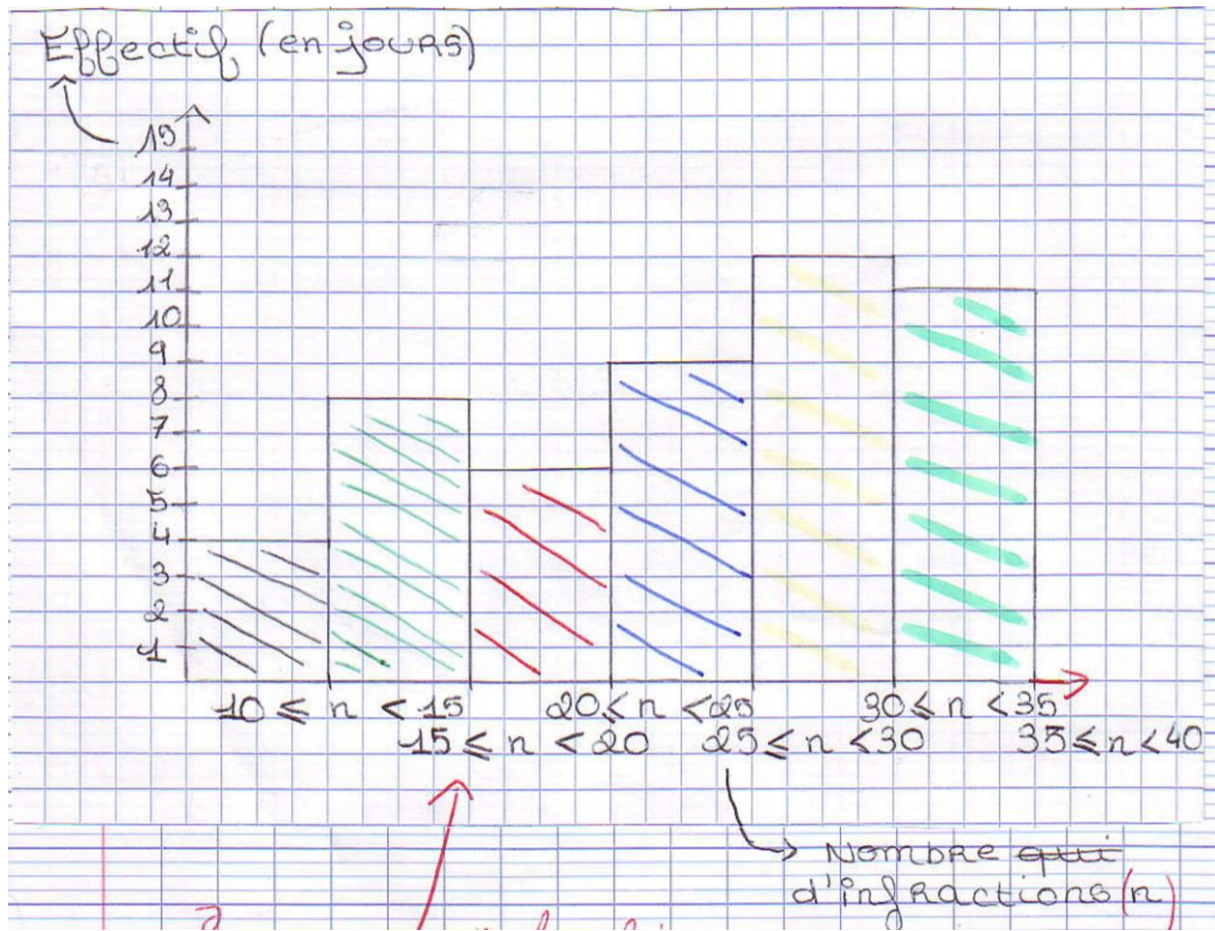 Effectif (en jours)
15
14
13
12
11
10
9
8
7
6
5
4
3
2
1
10 ≤ n < 15 20 ≤ n < 25 30 ≤ n < 35
15 ≤ n < 20 25 ≤ n < 30 35 ≤ n < 40
Nombre qui
d'infractions (n)